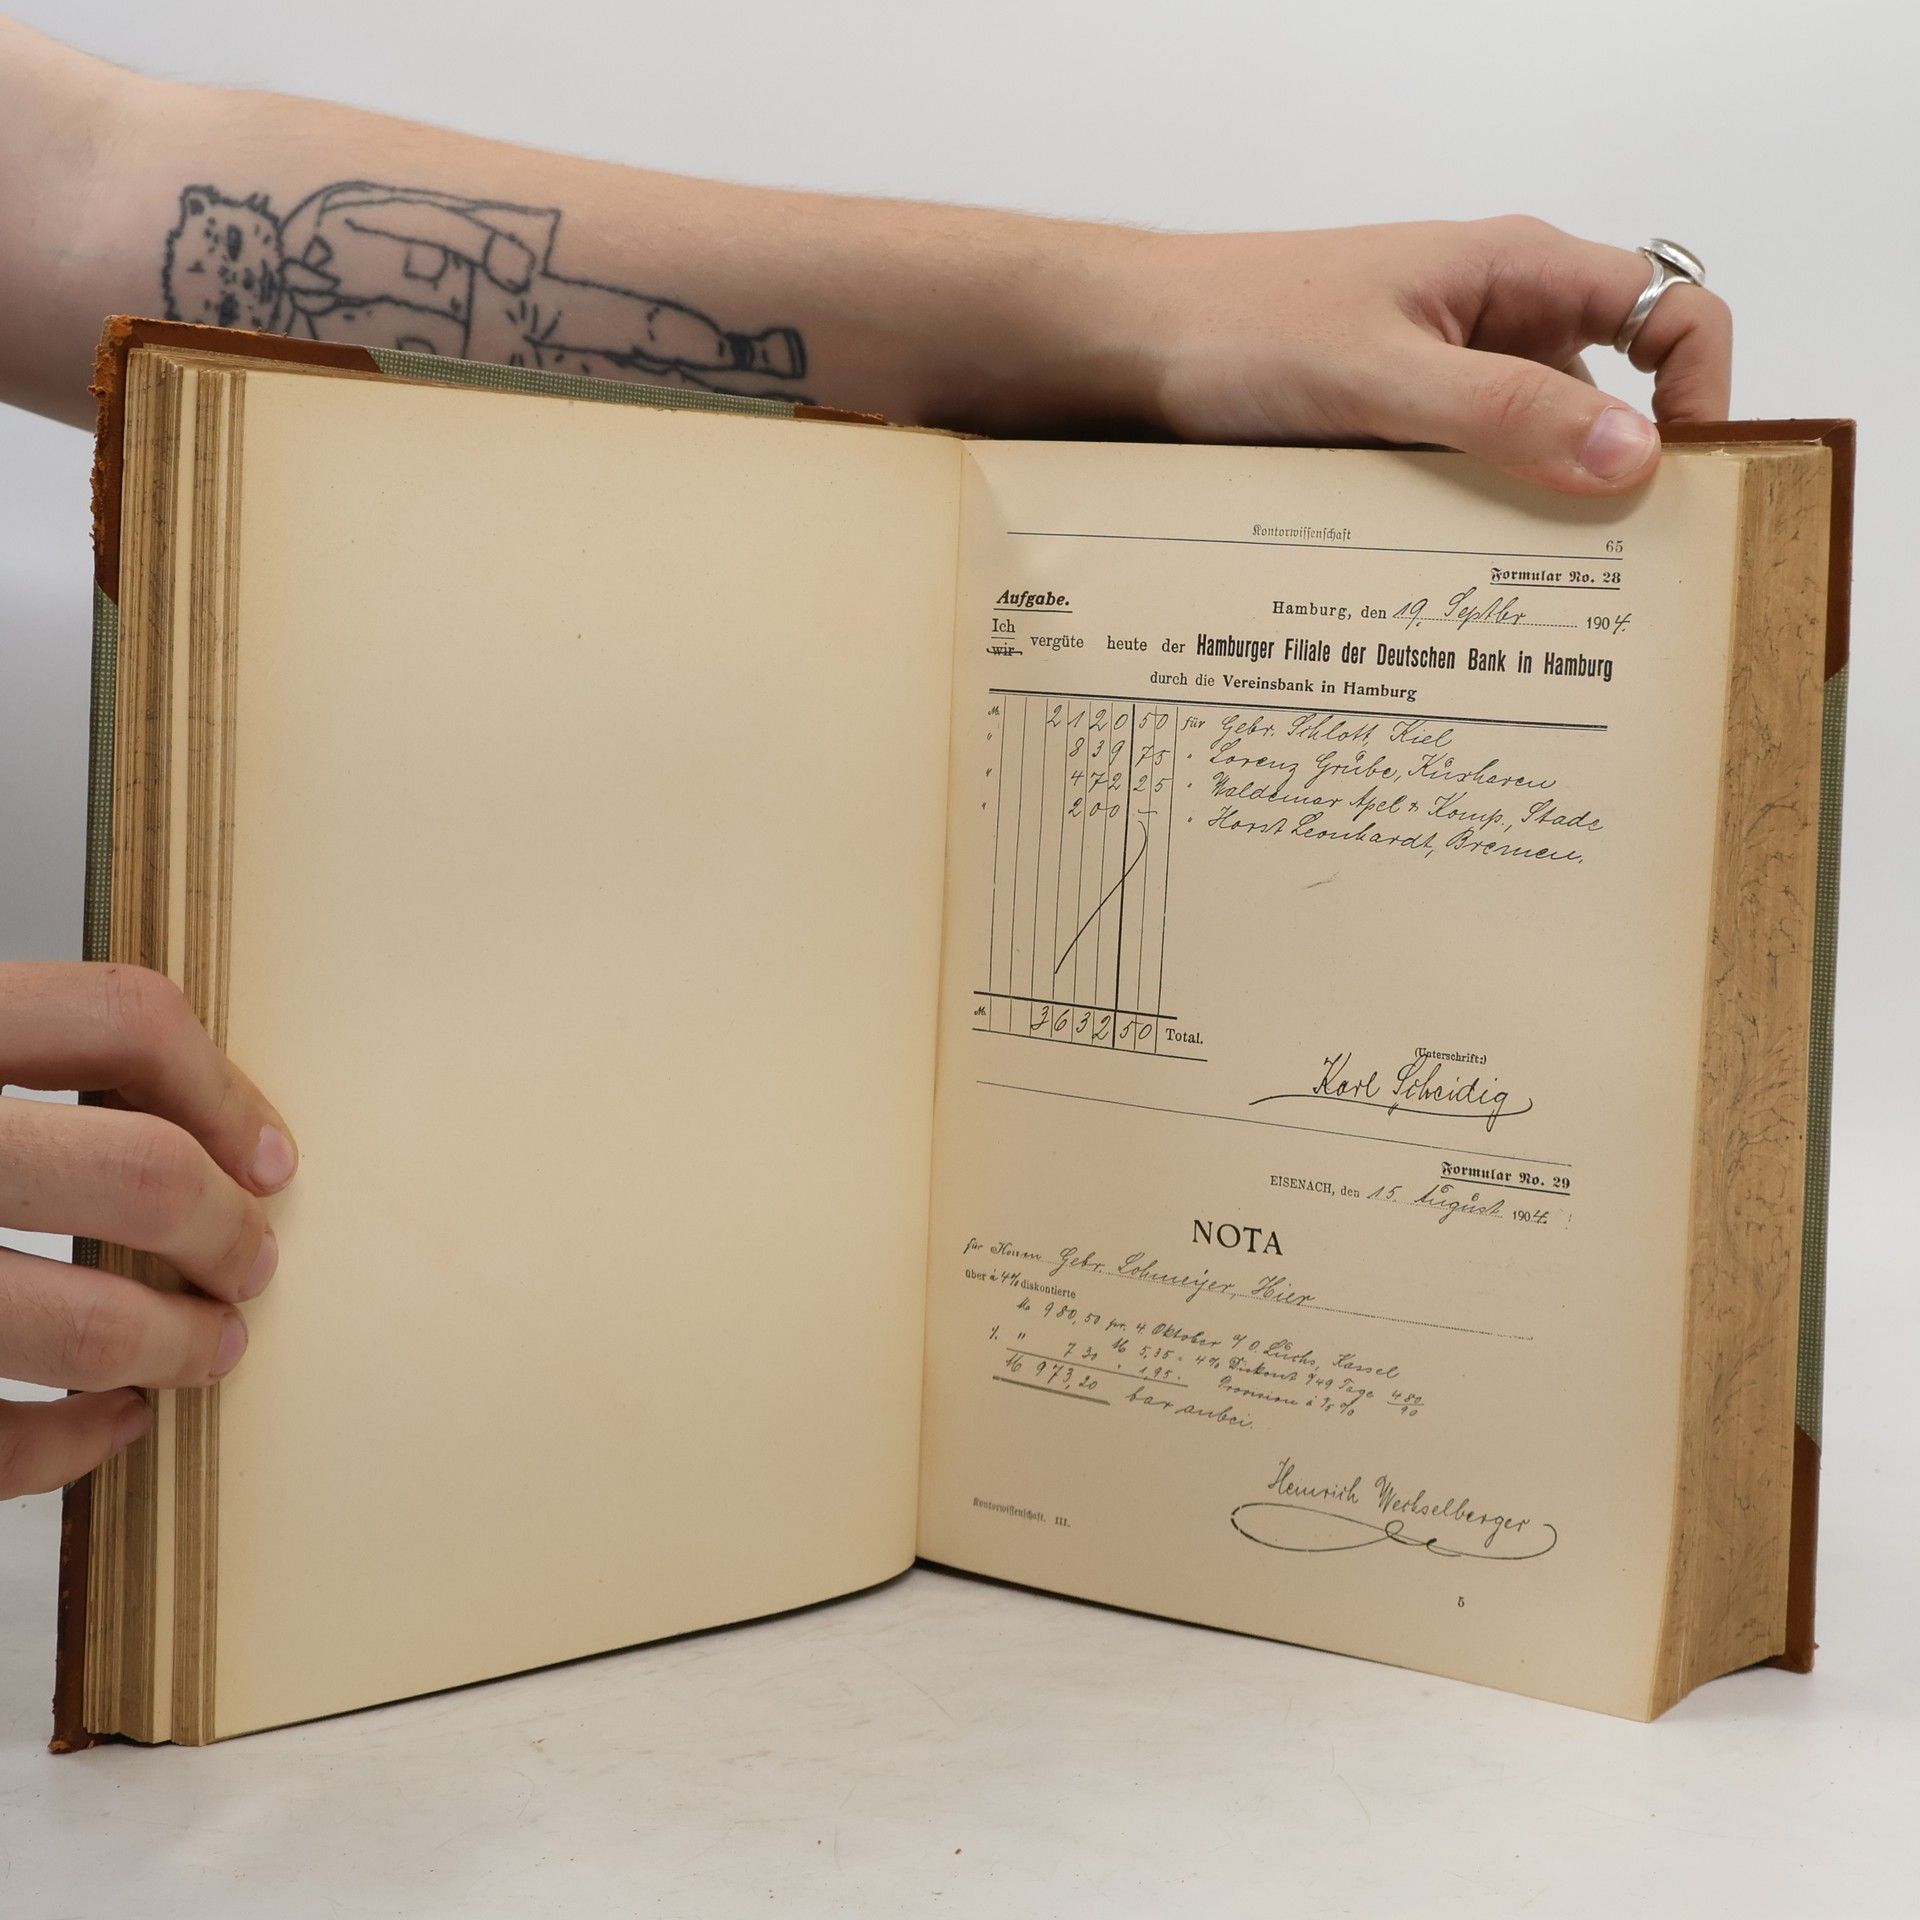 Kontorwissenschaft
65
Formular No. 28
Aufgabe.
Hamburg, den 19. Septbr 1904.
Ich
wir
vergüte heute der Hamburger Filiale der Deutschen Bank in Hamburg
durch die Vereinsbank in Hamburg
M. 2120 50 für Gebr. Schlott, Kiel
" 839 75 " Lorenz Grübe, Kuxhaven
" 472 25 " Waldemar Apel & Komp., Stade
" 200 — " Horst Leonhardt, Bremen.
M. 3632 50 Total.
(Unterschrift:)
Karl Scheidig
Formular No. 29
EISENACH, den 15. August 1904.
NOTA
für Herren Gebr. Lohmeijer, Hier
über à 4% diskontierte
M 980,50 pr. 4. Oktober a/ O. Luchs, Kassel
% " 7 30 M 5,35 = 4% Diskont f/49 Tage 480/90
" 1,95 = Provision à 1/5 %
M 973,20 bar anbei.
Heinrich Wechselberger
Kontorwissenschaft. III.
5